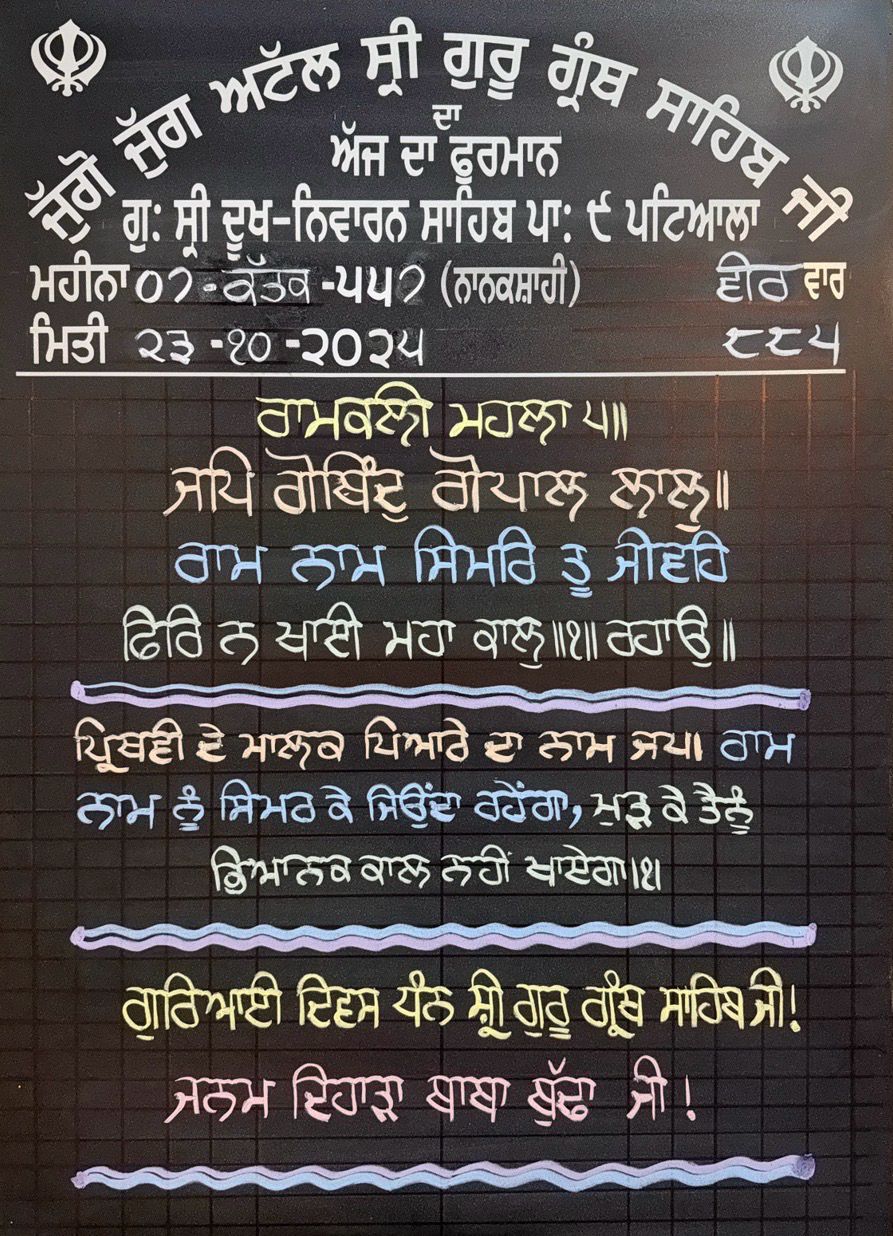 ਜੁੱਗੋ ਜੁੱਗ ਅਟੱਲ ਸ੍ਰੀ ਗੁਰੂ ਗ੍ਰੰਥ ਸਾਹਿਬ ਜੀ
ਦਾ
ਅੱਜ ਦਾ ਫੁਰਮਾਨ
ਗੁ: ਸ੍ਰੀ ਦੂਖ-ਨਿਵਾਰਨ ਸਾਹਿਬ ਪਾ: ੯ ਪਟਿਆਲਾ
ਮਹੀਨਾ ੦੭-ਕੱਤਕ-੫੫੭ (ਨਾਨਕਸ਼ਾਹੀ) ਵੀਰ ਵਾਰ
ਮਿਤੀ ੨੩-੧੦-੨੦੨੫ ੮੮੫
ਰਾਮਕਲੀ ਮਹਲਾ ੫॥
ਜਪਿ ਗੋਬਿੰਦੁ ਗੋਪਾਲ ਲਾਲੁ॥
ਰਾਮ ਨਾਮ ਸਿਮਰਿ ਤੂ ਜੀਵਹਿ
ਫਿਰਿ ਨ ਖਾਈ ਮਹਾ ਕਾਲੁ॥੧॥ ਰਹਾਉ॥
ਪ੍ਰਿਥਵੀ ਦੇ ਮਾਲਕ ਪਿਆਰੇ ਦਾ ਨਾਮ ਜਪ। ਰਾਮ
ਨਾਮ ਨੂੰ ਸਿਮਰ ਕੇ ਜਿਉਂਦਾ ਰਹੇਂਗਾ, ਮੁੜ ਕੇ ਤੈਨੂੰ
ਭਿਆਨਕ ਕਾਲ ਨਹੀਂ ਖਾਏਗਾ।੧।
ਗੁਰਿਆਈ ਦਿਵਸ ਧੰਨ ਸ਼੍ਰੀ ਗੁਰੂ ਗ੍ਰੰਥ ਸਾਹਿਬ ਜੀ!
ਜਨਮ ਦਿਹਾੜਾ ਬਾਬਾ ਬੁੱਢਾ ਜੀ!